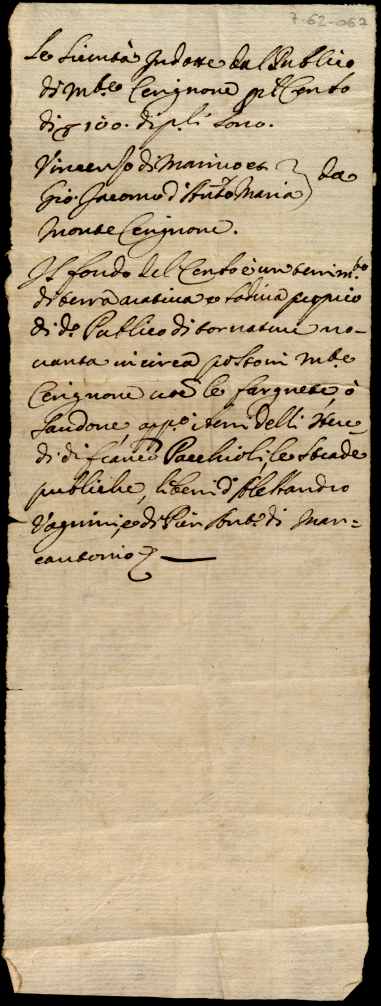 7-62-067
Le Sicurtà Indotte dal Publico
di M.te Cerignone p Censo
di 100. di
Vincenzo di Marino et
Gio Jacomo d'Ant.o Maria } da
Monte Cerignone.
Il fondo del Censo è un
di terra aratiua e sodiua proprio
di d.o Publico di tornature no-
uanta incirca posto in M.te
Cerignone le fargnete, ò
app.o i beni delli Here
di di Franc.o Pacchioli, le strade
publiche, li beni d'Alessandro
Vagnini, e di Pier Ant.o di Mar=
cantonio